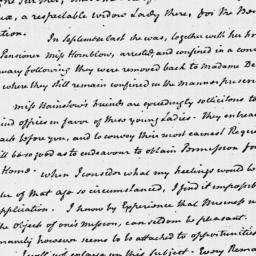 a, a respectable widow Lady there, for the Ben
tion.
In September last she was, together with her fr
Pensioner Miss Hornblow, arrested, and confined in a conv
uary following they were removed back to Madame De
where they still remain confined in the manner prescri
Miss Hainslow's friends are exceedingly sollicitous to
ind offices in favor of these young Ladies. They entrea
each before you, and to convey their most earnest Reque
ill be so good as to endeavour to obtain Permission for
Home. When I consider what my feelings would be
ter of that age so circumstanced, I find it impossib
application. I know by Experience that Business n
the Object of one's mission, can seldom be pleasant.
manity however seems to be attached to opportunities
I will not enlarge on this Subject. Every Rema